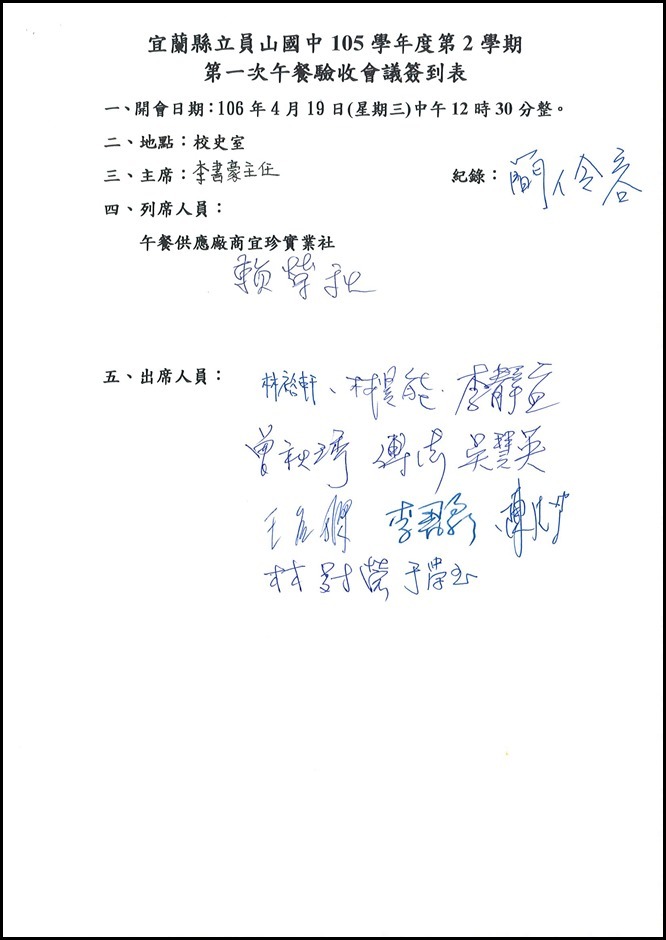 宜蘭縣立員山國中 105 學年度第 2 學期
第一次午餐驗收會議簽到表
一、開會日期：106 年 4 月 19 日(星期三)中午 12 時 30 分整。
二、地點：校史室
三、主席：李書豪主任 紀錄：簡伶容
四、列席人員：
午餐供應廠商宜珍實業社
賴榮
五、出席人員：林裕軒、林昆能、李靜宜
曾秋琦 吳慧英
王 李
林 榮 于榮玉